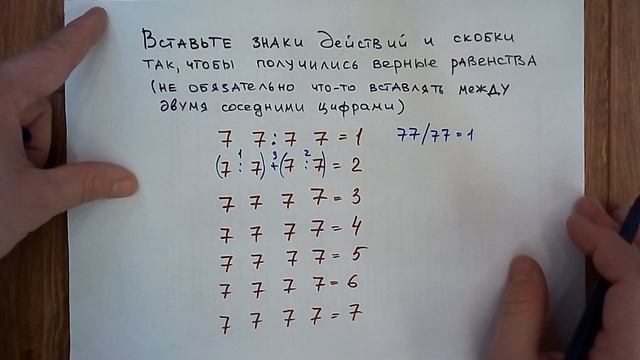 Вставьте знаки действий и скобки
так, чтобы получились верные равенства
(не обязательно что-то вставлять между
двумя соседними цифрами)
7 7 : 7 7 = 1 77/77=1
1 3 2
(7 : 7) + (7 : 7) = 2
7 7 7 7 = 3
7 7 7 7 = 4
7 7 7 7 = 5
7 7 7 7 = 6
7 7 7 7 = 7